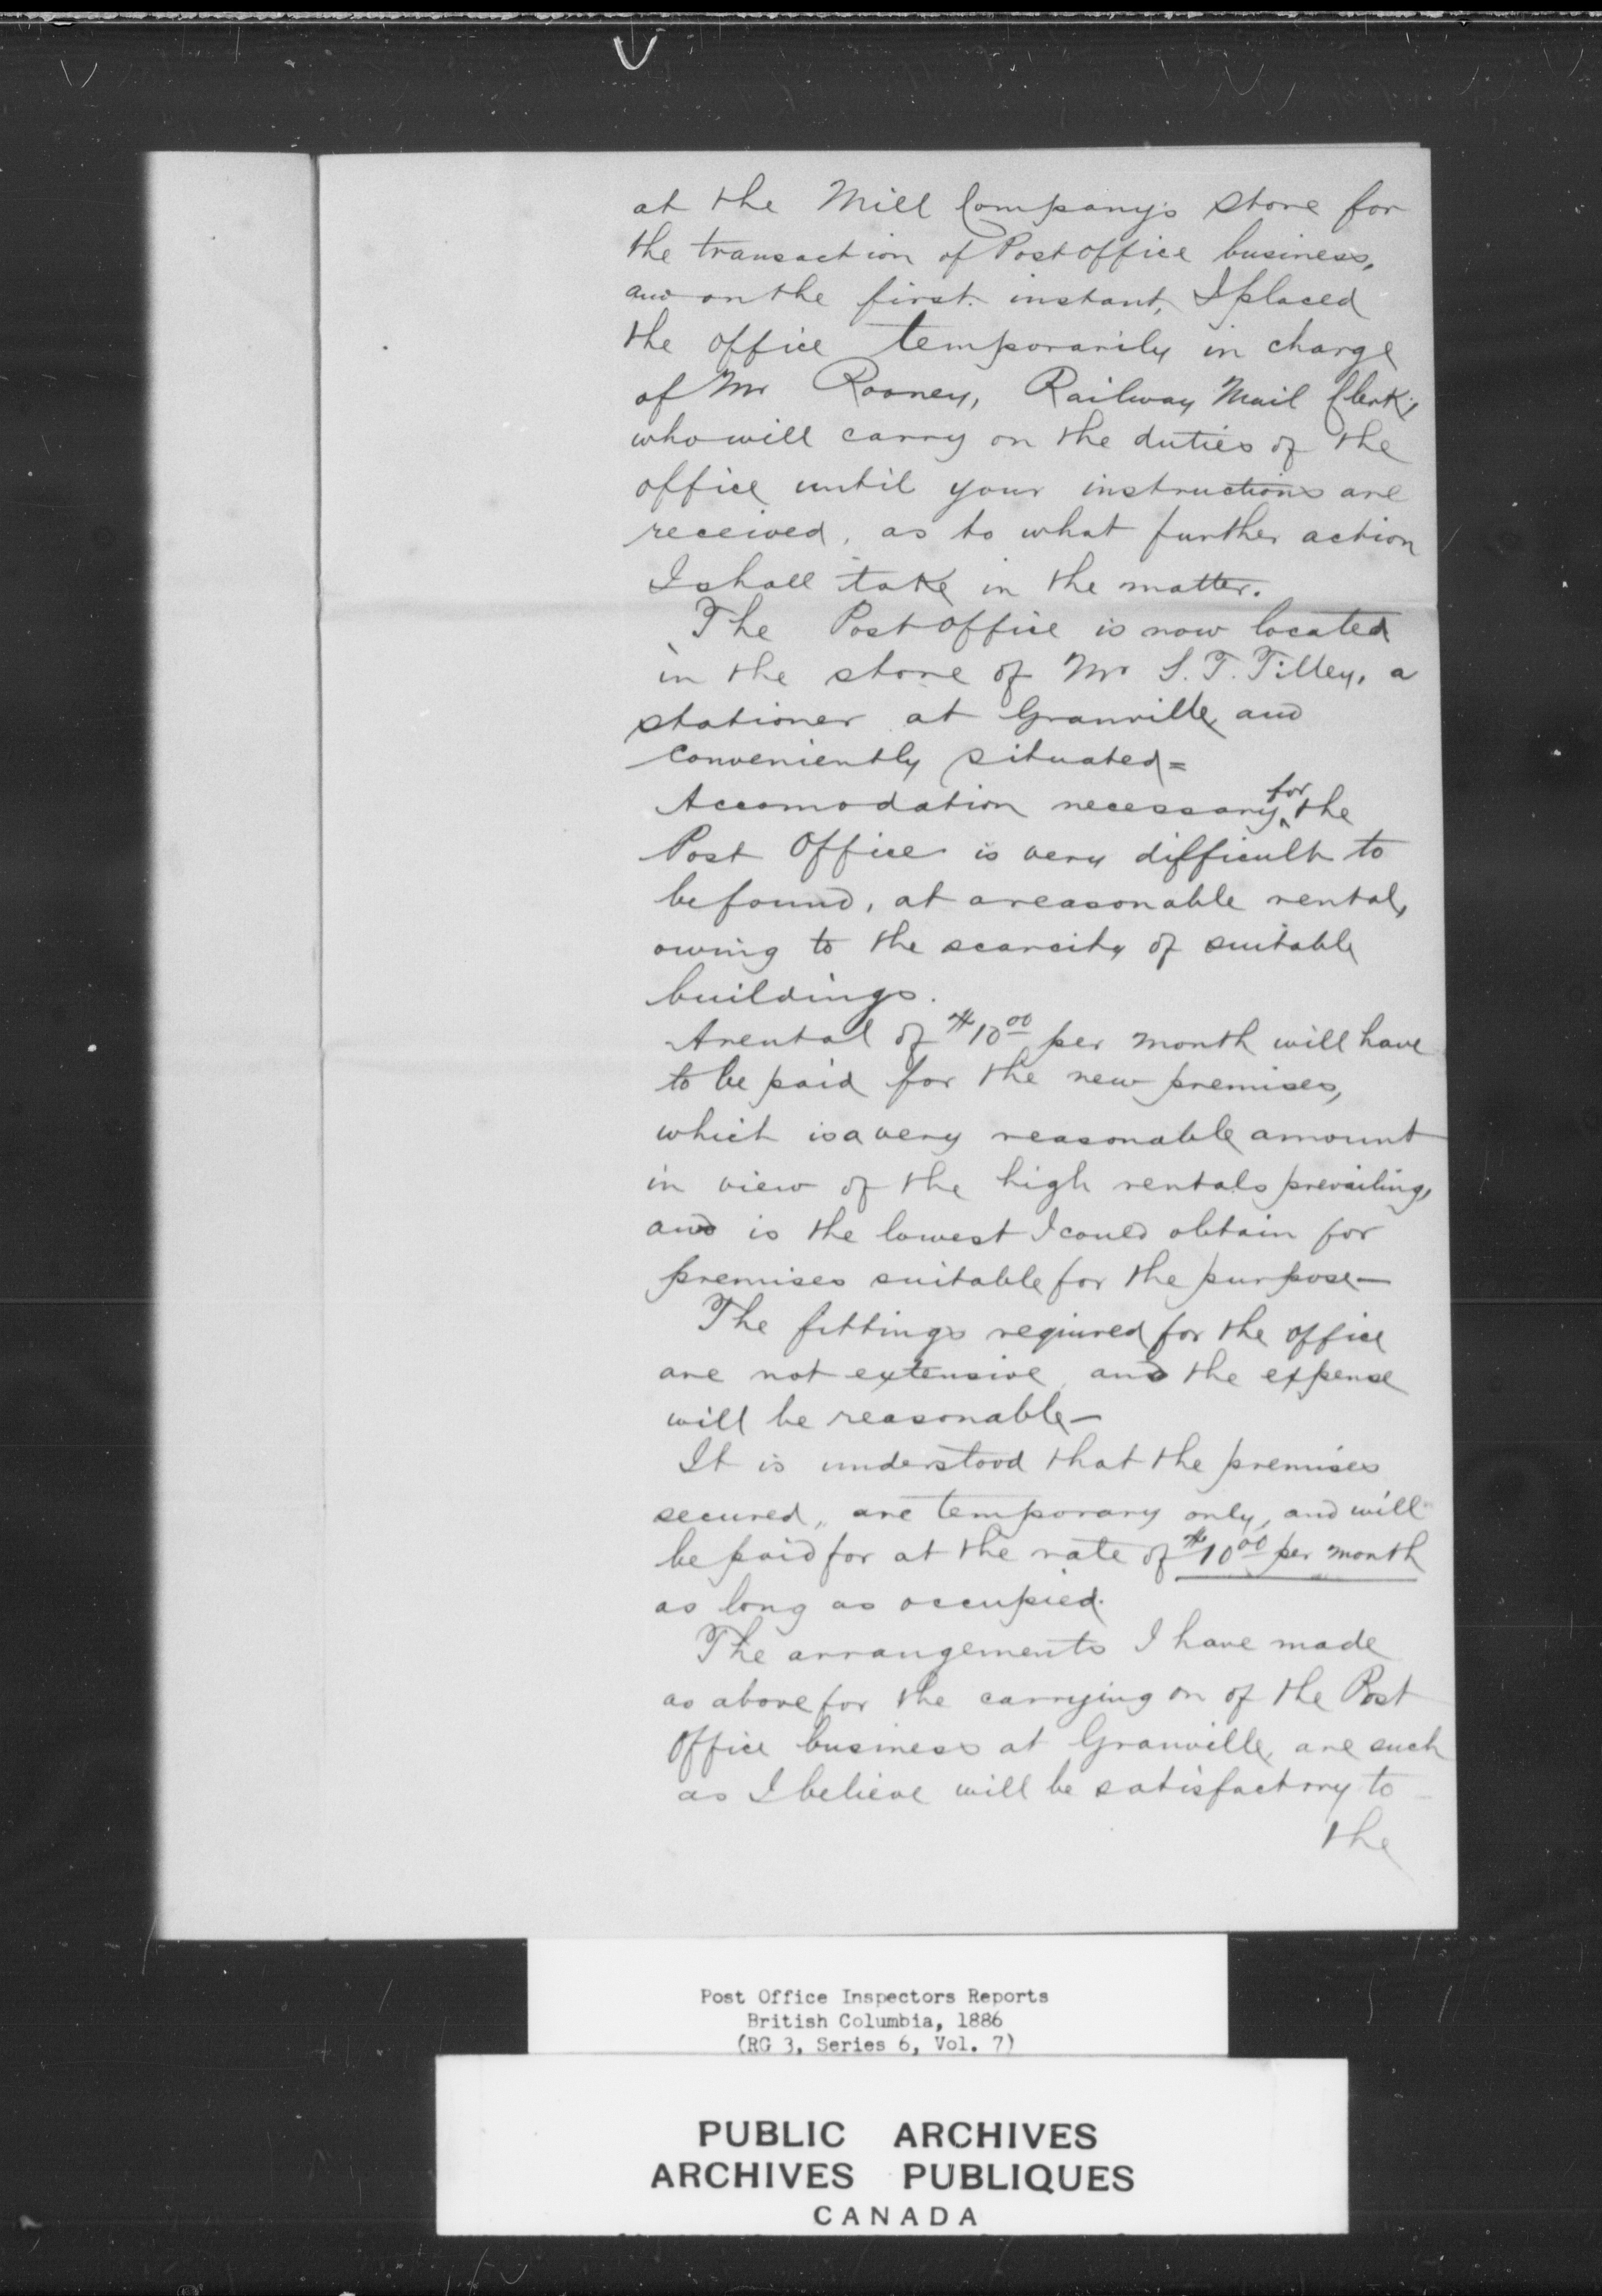 at the Mill Company's store for
the transaction of Post office business,
and on the first. instant, I placed
the office temporarily in charge
of Mr Rooney, Railway Mail Clerk,
who will carry on the duties of the
office until your instructions are
received, as to what further action
I shall take in the matter.
The Post office is now located
in the store of Mr S. T. Tilley, a
stationer at Granville and
conveniently situated=
Accomodation necessary for the
Post Office is very difficult to
be found, at a reasonable rental,
owing to the scarcity of suitable
buildings.
A rental of $10 00 per month will have
to be paid for the new premises,
which is a very reasonable amount
in view of the high rentals prevailing,
and is the lowest I could obtain for
premises suitable for the purpose—
The fittings required for the office
are not extensive, and the expense
will be reasonable—
It is understood that the premises
secured, are temporary only, and will
be paid for at the rate of $10 00 per month
as long as occupied.
The arrangements I have made
as above for the carrying on of the Post
Office business at Granville, are such
as I believe will be satisfactory to
the
Post Office Inspectors Reports
British Columbia, 1886
(RG 3, Series 6, Vol. 7)
PUBLIC ARCHIVES
ARCHIVES PUBLIQUES
CANADA